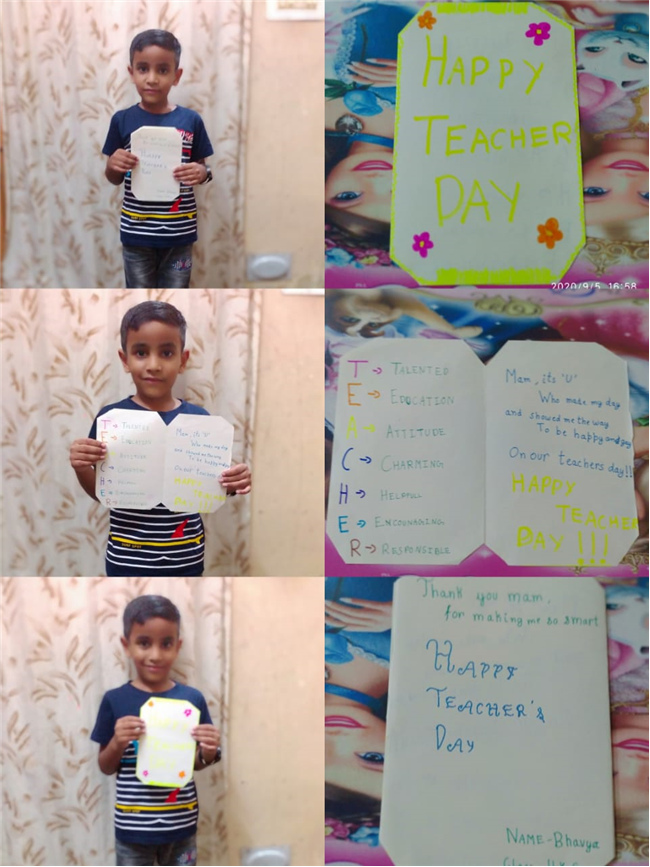 HAPPY
TEACHER
DAY
2020/9/5 16:58
T → TALENTED
E → EDUCATION
A → ATTITUDE
C → CHARMING
H → HELPFUL
E → ENCOURAGING
R → RESPONSIBLE
Mam, its "U"
Who made my day
and showed me the way
To be happy and gay
On our teachers day!!
HAPPY
TEACHER
DAY!!!
Thank you mam,
for making me so smart
HAPPY
TEACHER'S
DAY
NAME-Bhavya